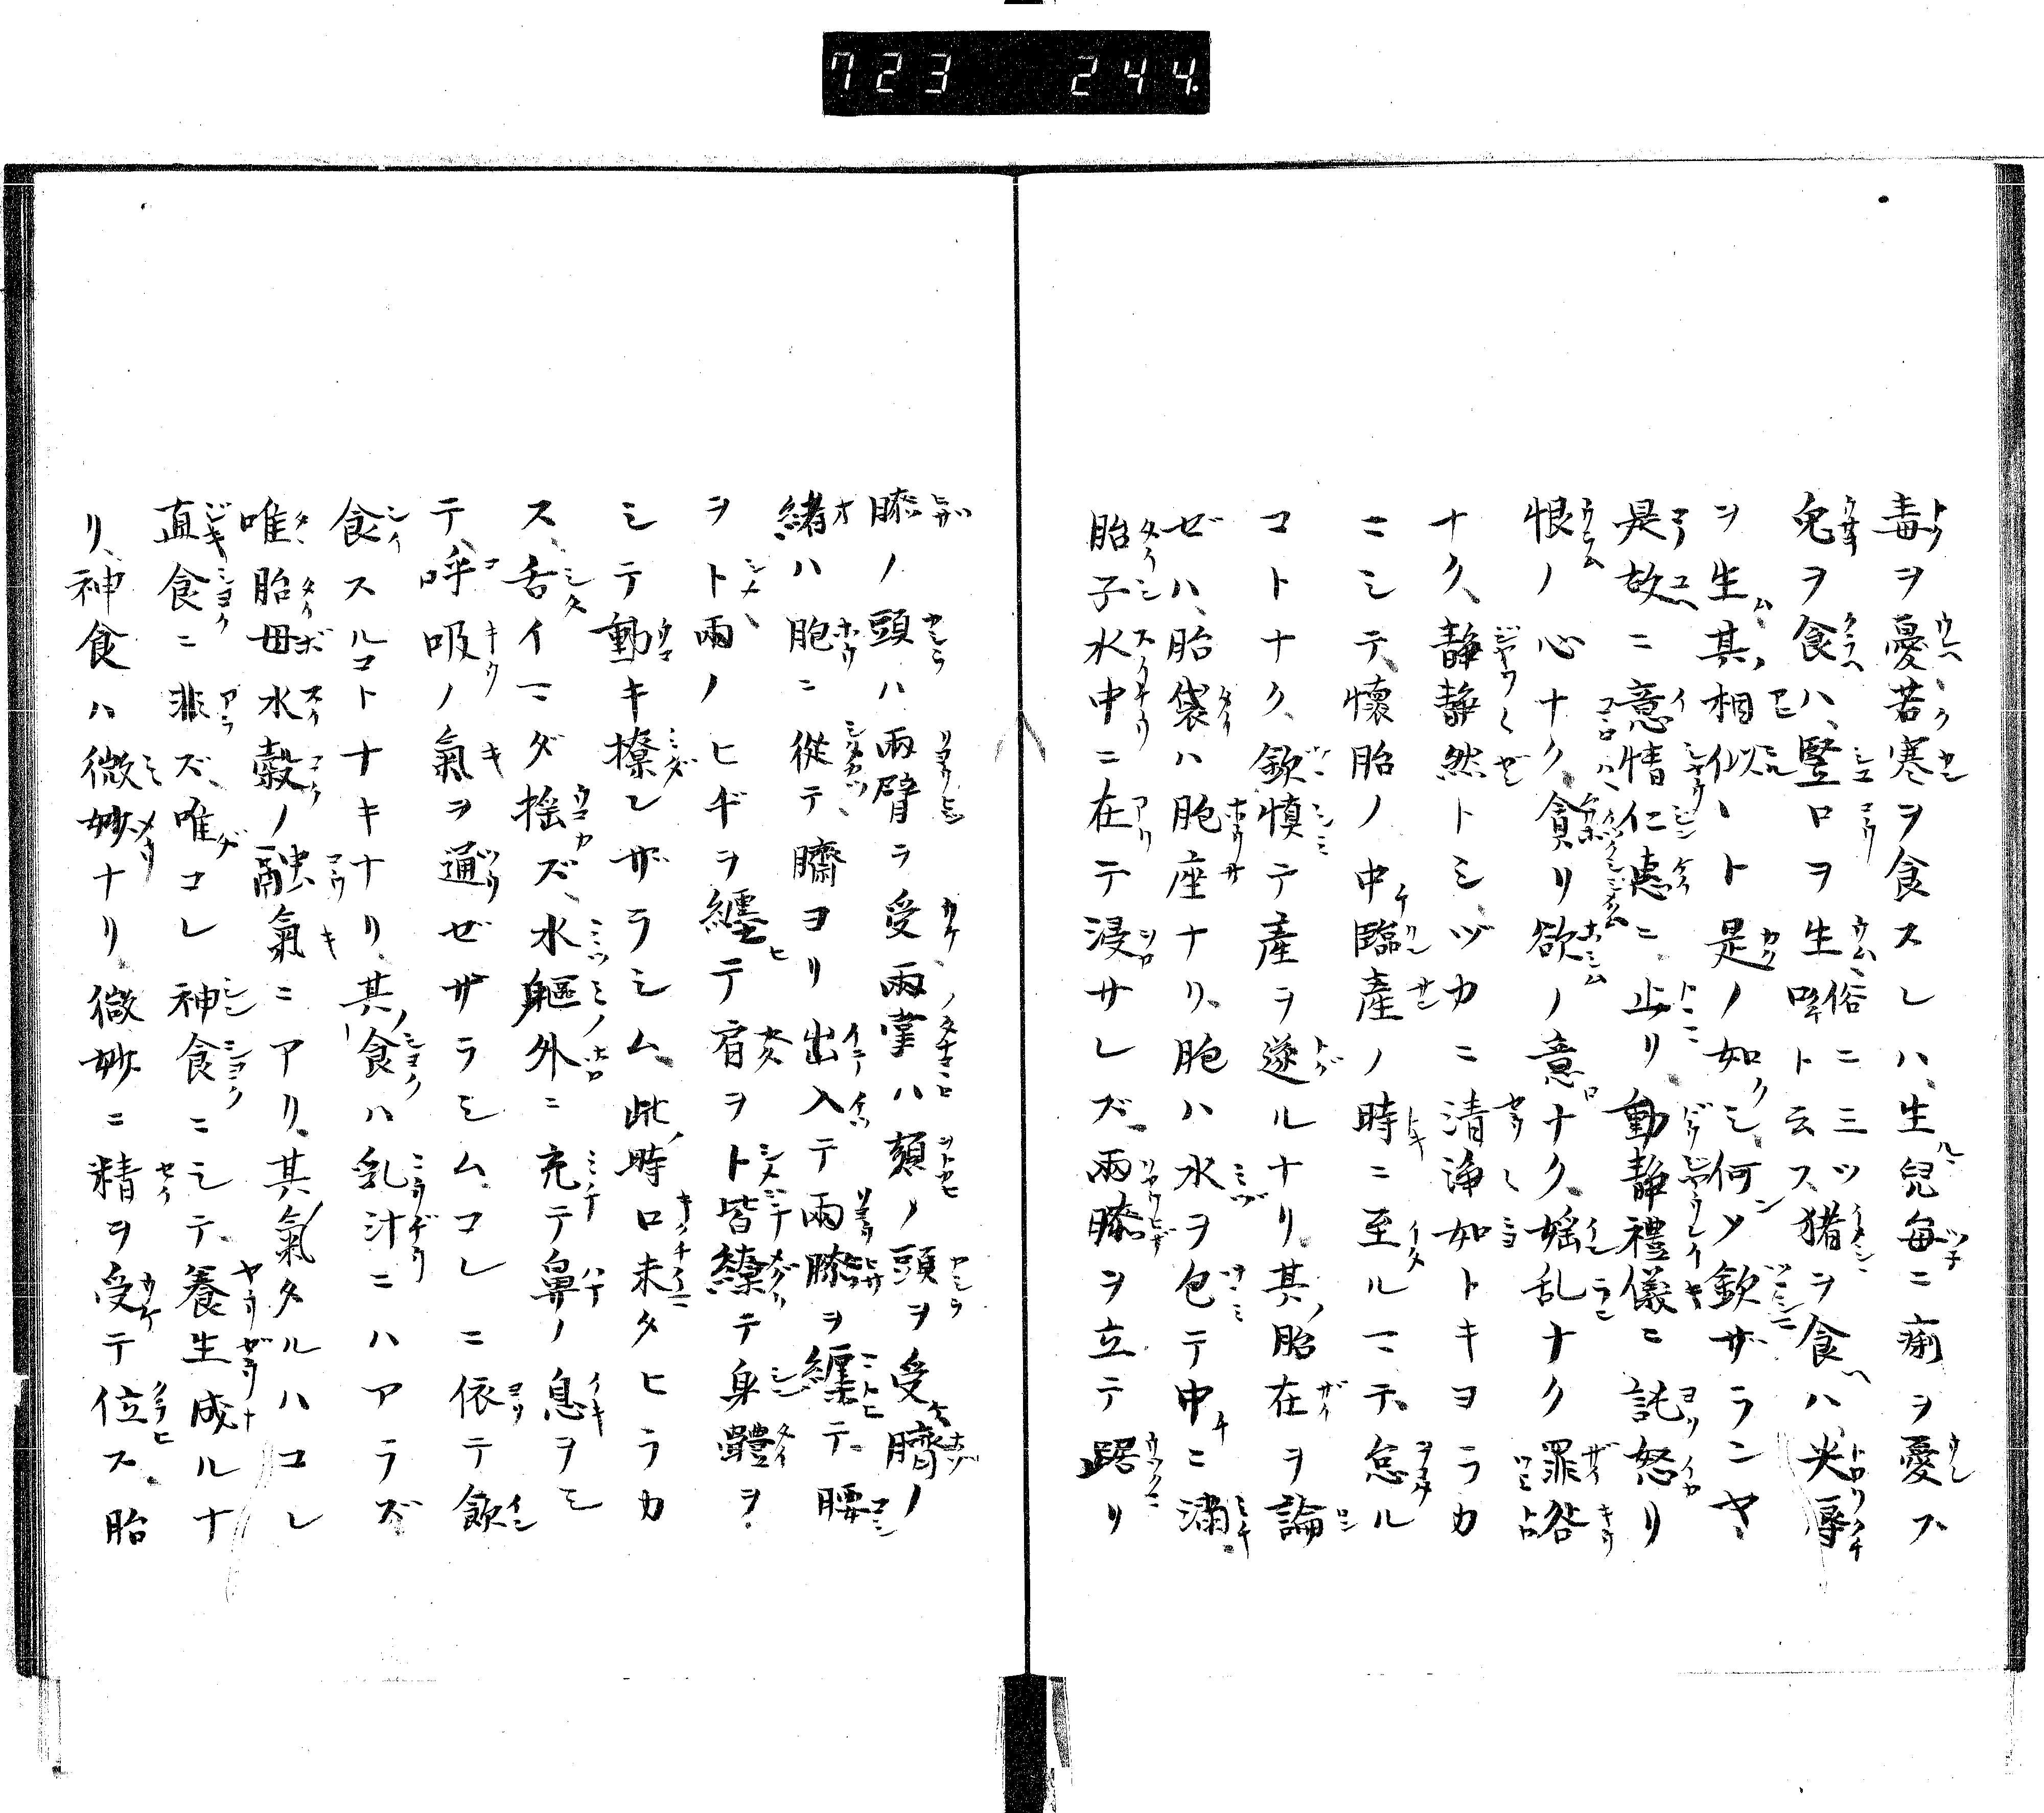 723 244.
毒ヲ憂苦寒ヲ食スレハ、生兒毎ニ痢ヲ憂フ
兔ヲ食ハ、豎口ヲ生俗ニ三ツ哶ト云ス、猪ヲ食ハ、尖脣
ヲ生其相似ト是ノ如シ、何ソ欽ザランヤ、
是故ニ意情仁恵ニ止リ動静禮儀ニ託怒リ
恨ノ心ナク、貪リ欲ノ意ナク、婬乱ナク罪咎
ナク、静静然トシヅカニ清浄如トキヨラカ
ニシテ、懐胎ノ中臨産ノ時ニ至ルマテ、怠ル
コトナク、欽慎テ產ヲ遂ルナリ、其胎在ヲ論
ゼハ、胎袋ハ胞座ナリ、胞ハ水ヲ包テ中ニ満、
胎子水中ニ在テ浸サレズ、兩膝ヲ立テ踞リ
膝ノ頭ハ兩臂ラ受兩掌ハ頬ノ頭ヲ受臍ノ
緒ハ胞ニ從テ臍ヨリ出入テ兩膝ヲ纏テ、腰
ヲト兩ノヒザヲ纏テ肩ヲト皆繚テ身體ヲ
シテ動キ撩レザラシム、此時口未タヒラカ
ス、舌イマダ揺ズ、水軀外ニ充テ鼻ノ息ヲシ
テ、呼吸ノ氣ヲ通ゼザラシム、コレニ依テ飲
食スルコトナキナリ、其食ハ乳汁ニハアラズ
唯胎母水穀ノ融氣ニアリ、其氣タルハコレ
直食ニ非ズ、唯コレ神食ニシテ、養生成ルナ
リ、神食ハ微妙ナリ、微妙ニ精ヲ受テ位ス、胎